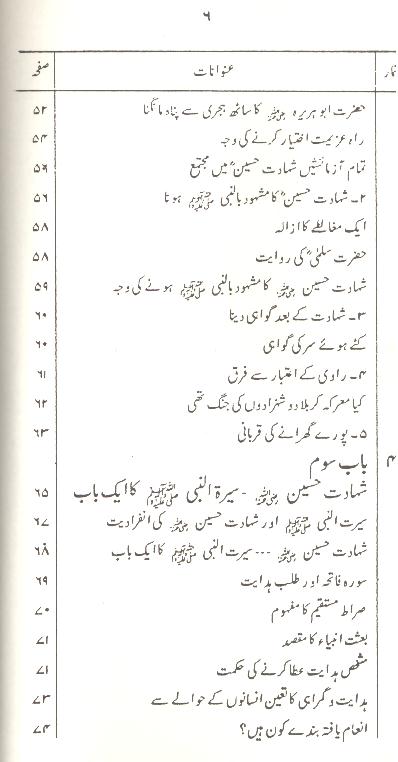 ۶
نمبر عنوانات صفحہ
حضرت ابوہریرہ ﷛ کا ساٹھ ہجری سے پناہ مانگنا ۵۲
راہ عزیمت اختیار کرنے کی وجہ ۵۴
تمام آزمائشیں شہادت حسینؓ میں مجتمع ۵۶
۲۔ شہادت حسینؓ کا مشہود بالنبی ﷺ ہونا ۵۶
ایک مغالطے کا ازالہ ۵۸
حضرت سلمیٰؓ کی روایت ۵۸
شہادت حسین کا مشہود بالنبی ﷺ ہونے کی وجہ ۵۹
۳۔ شہادت کے بعد گواہی دینا ۶۰
کٹے ہوئے سر کی گواہی ۶۰
۴۔ راوی کے اعتبار سے فرق ۶۱
کیا معرکہ کربلا دو شہزادوں کی جنگ تھی ۶۲
۵۔ پورے گھرانے کی قربانی ۶۳
۴ باب سوم
شہادت حسین ۔ سیرۃ النبی ﷺ کا ایک باب ۶۵
سیرت النبی ﷺ اور شہادت حسین کی انفرادیت ۶۷
شہادت حسین ۔۔۔ سیرت النبی ﷺ کا ایک باب ۶۸
سورہ فاتحہ اور طلب ہدایت ۶۹
صراط مستقیم کا مفہوم ۷۰
بعثت انبیاء کا مقصد ۷۱
مشخص ہدایت عطا کرنے کی حکمت ۷۱
ہدایت و گمراہی کا تعین انسانوں کے حوالے سے ۷۳
انعام یافتہ بندے کون ہیں؟ ۷۴